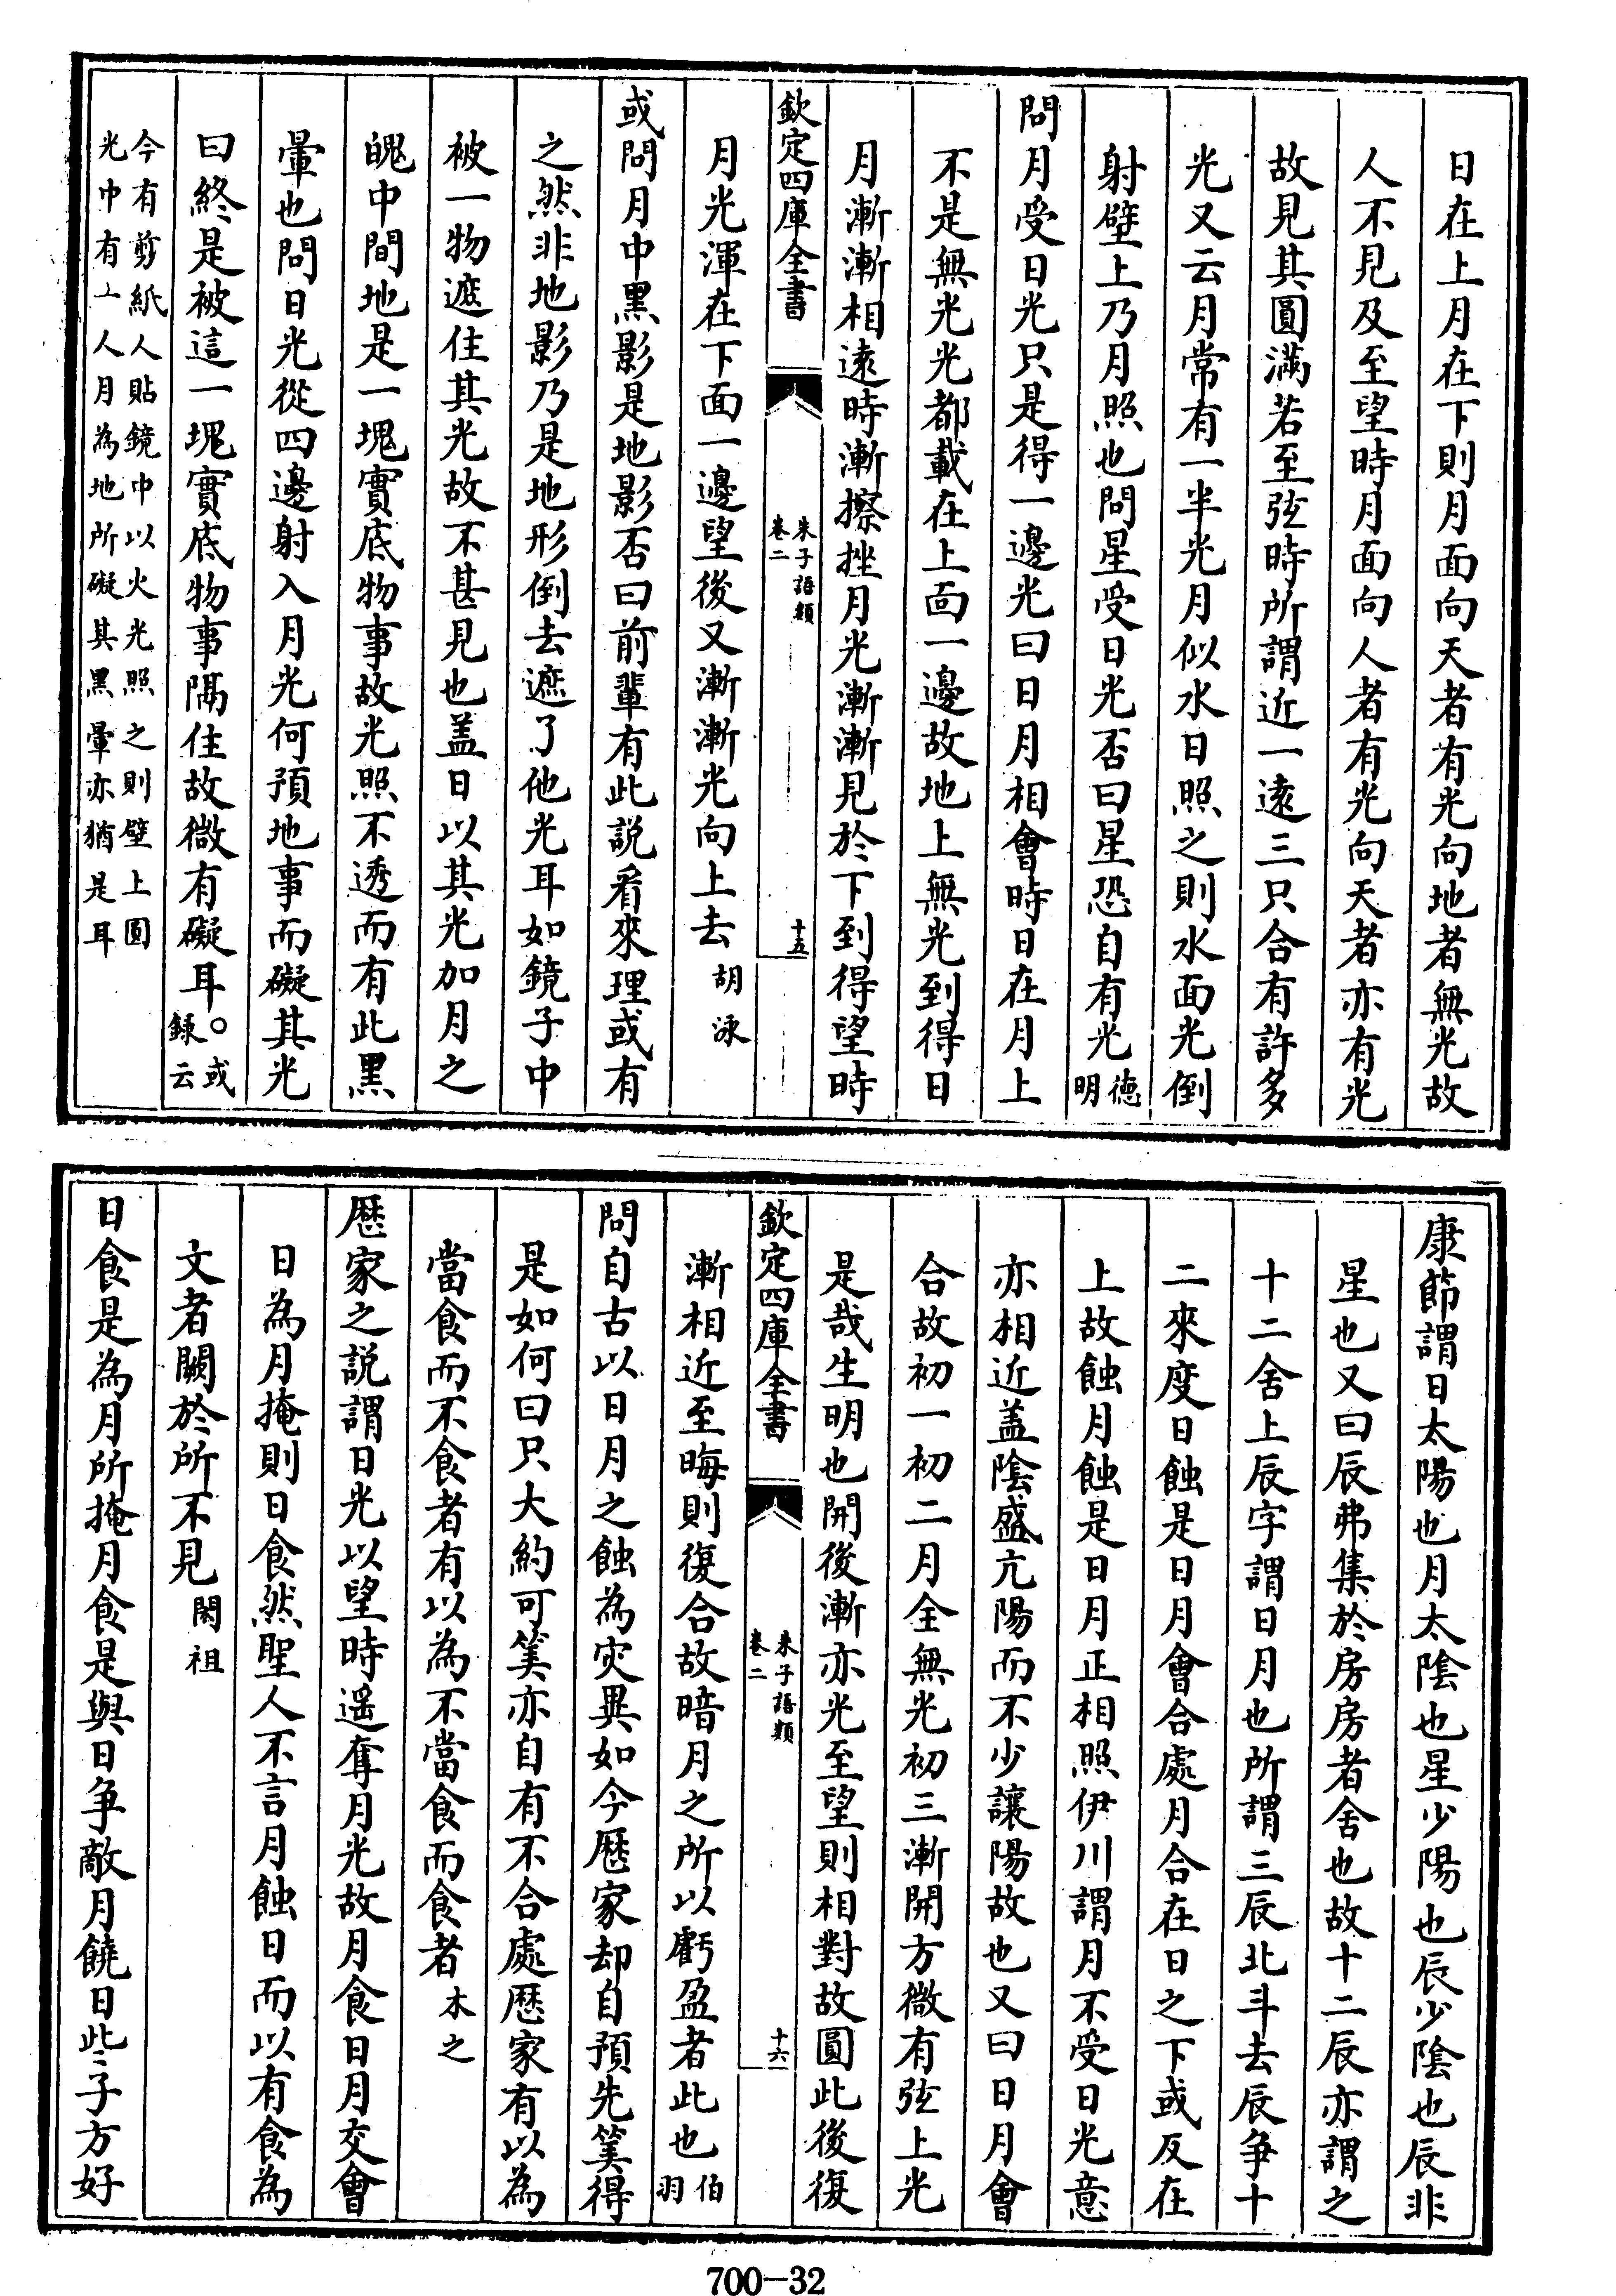 日在上月在下則月面向天者有光向地者無光故
人不見及至望時月面向人者有光向天者亦有光
故見其圓滿若至弦時所謂近一遠三只合有許多
光又云月常有一半光月似水日照之則水面光倒
射壁上乃月照也問星受日光否曰星恐自有光德明
問月受日光只是得一邊光曰日月相會時日在月上
不是無光光都載在上面一邊故地上無光到得日
月漸漸相遠時漸擦挫月光漸漸見於下到得望時
欽定四庫全書
朱子語類
卷二
十五
月光渾在下面一邊望後又漸漸光向上去胡泳
或問月中黑影是地影否曰前輩有此説看來理或有
之然非地影乃是地形倒去遮了他光耳如鏡子中
被一物遮住其光故不甚見也盖日以其光加月之
魄中間地是一塊實底物事故光照不透而有此黑
暈也問日光從四邊射入月光何預地事而礙其光
曰終是被這一塊實底物事隔住故微有礙耳○或
録云
今有剪紙人貼鏡中以火光照之則壁上圓
光中有一人月為地所礙其黑暈亦猶是耳
康節謂日太陽也月太陰也星少陽也辰少陰也辰非
星也又曰辰弗集於房房者舍也故十二辰亦謂之
十二舍上辰字謂日月也所謂三辰北斗去辰争十
二來度日蝕是日月會合處月合在日之下或反在
上故蝕月蝕是日月正相照伊川謂月不受日光意
亦相近盖陰盛亢陽而不少讓陽故也又曰日月會
合故初一初二月全無光初三漸開方微有弦上光
是哉生明也開後漸亦光至望則相對故圓此後復
欽定四庫全書
朱子語類
卷二
十六
漸相近至晦則復合故暗月之所以虧盈者此也伯羽
問自古以日月之蝕為灾異如今厯家却自預先筭得
是如何曰只大約可筭亦自有不合處厯家有以為
當食而不食者有以為不當食而食者木之
厯家之説謂日光以望時遥奪月光故月食日月交會
日為月掩則日食然聖人不言月蝕日而以有食為
文者闕於所不見閎祖
日食是為月所掩月食是與日争敵月饒日些子方好
700-32